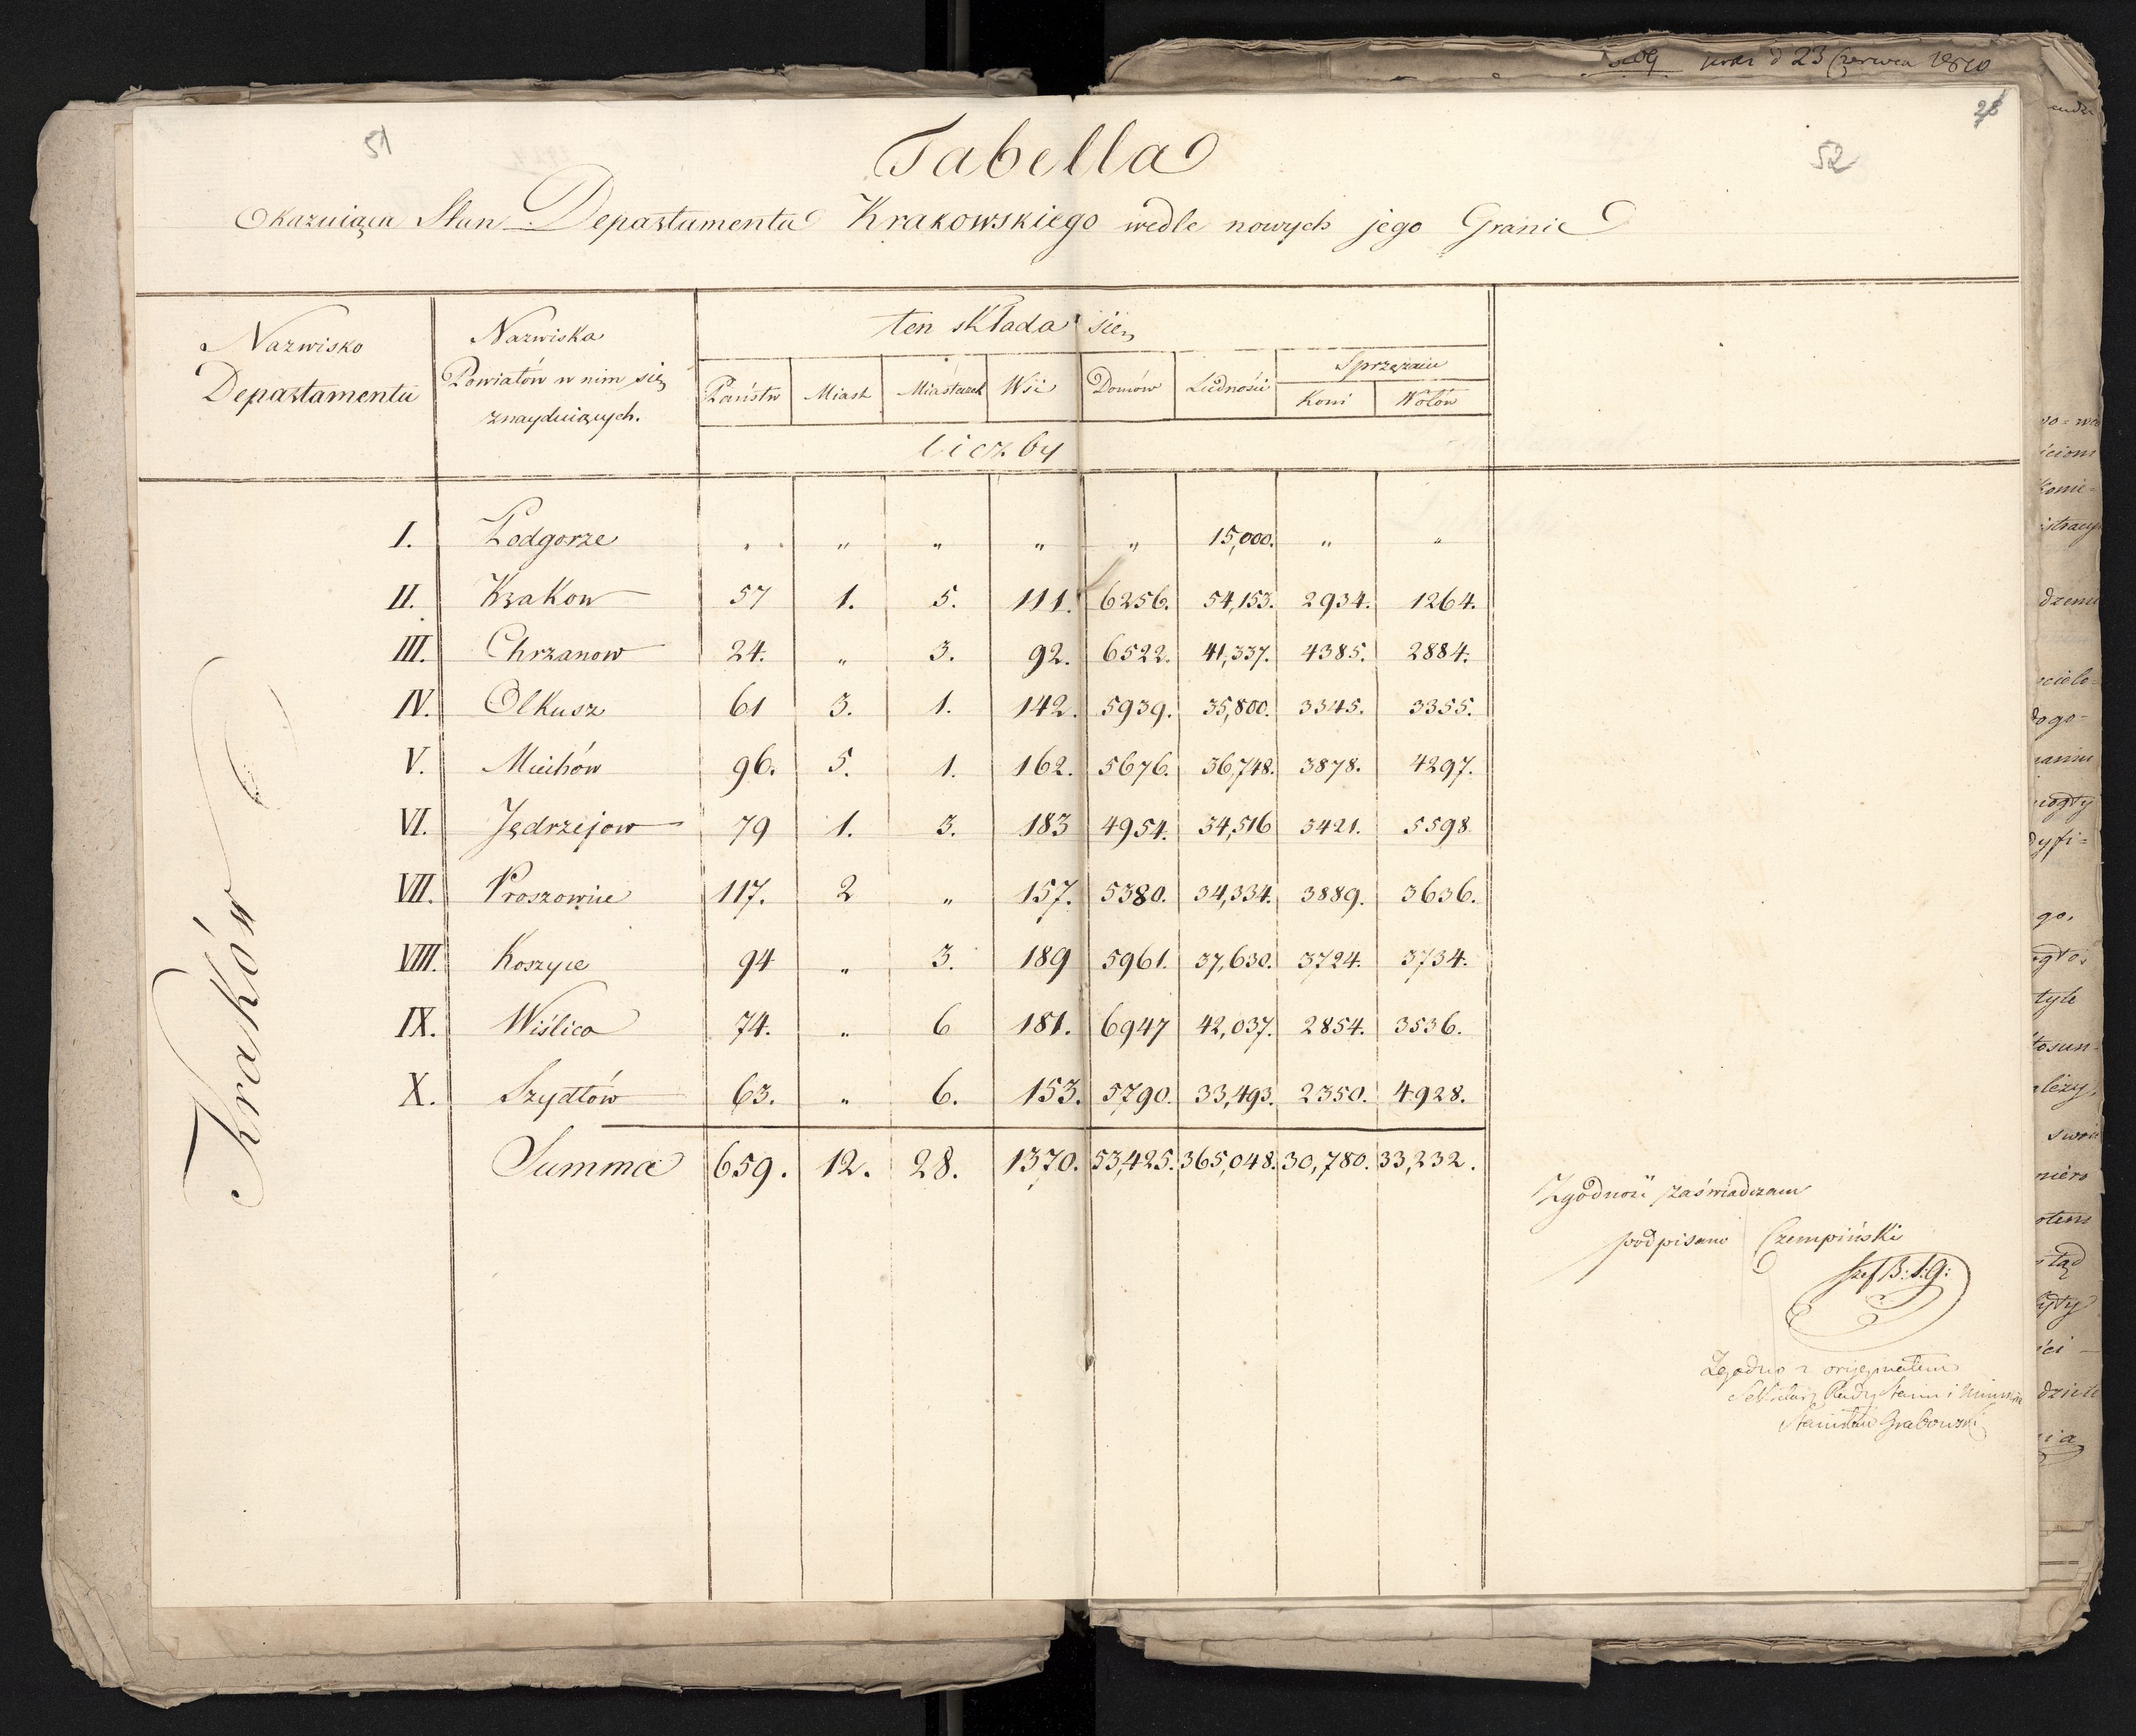 prez d 23 Czerwca 1810
51
52
28
Tabella
Okazuiąca Stan Departamentu Krakowskiego wedle nowych jego Granic
Nazwisko Departamentu
Nazwiska Powiatow w nim się znayduiących.
ten składa się
Państw Miast Miasteczek Wsi Domów Ludności Sprzężaiu Koni Wołów
liczby
Kraków
I. Podgorze " " " " " 15,000. " "
II. Krakow 57 1. 5. 111. 6256. 54,153. 2934. 1264.
III. Chrzanow 24. " 3. 92. 6522. 41,337. 4385. 2884.
IV. Olkusz 61 3. 1. 142. 5939. 35,800. 3345. 3355.
V. Miechów 96. 5. 1. 162. 5676. 36,748. 3878. 4297.
VI. Jędrzejow 79 1. 3. 183 4954. 34,516 3421. 5598
VII. Proszowice 117. 2 " 157. 5380. 34,334. 3889. 3636.
VIII. Koszyce 94 " 3. 189 5961. 37,630. 3724. 3734.
IX. Wiślica 74. " 6 181. 6947 42,037. 2854. 3536.
X. Szydłów 63. " 6. 153. 5790. 33,493. 2350. 4928.
Summa 659. 12. 28. 1370. 53,425. 365,048. 30,780. 33,232.
Zgodność zaświadczam
podpisano Czempiński
Szef B: J: G:
Zgodno z oryginałem
Sekretarz Rady Stanu i
Stanisław Grabowski